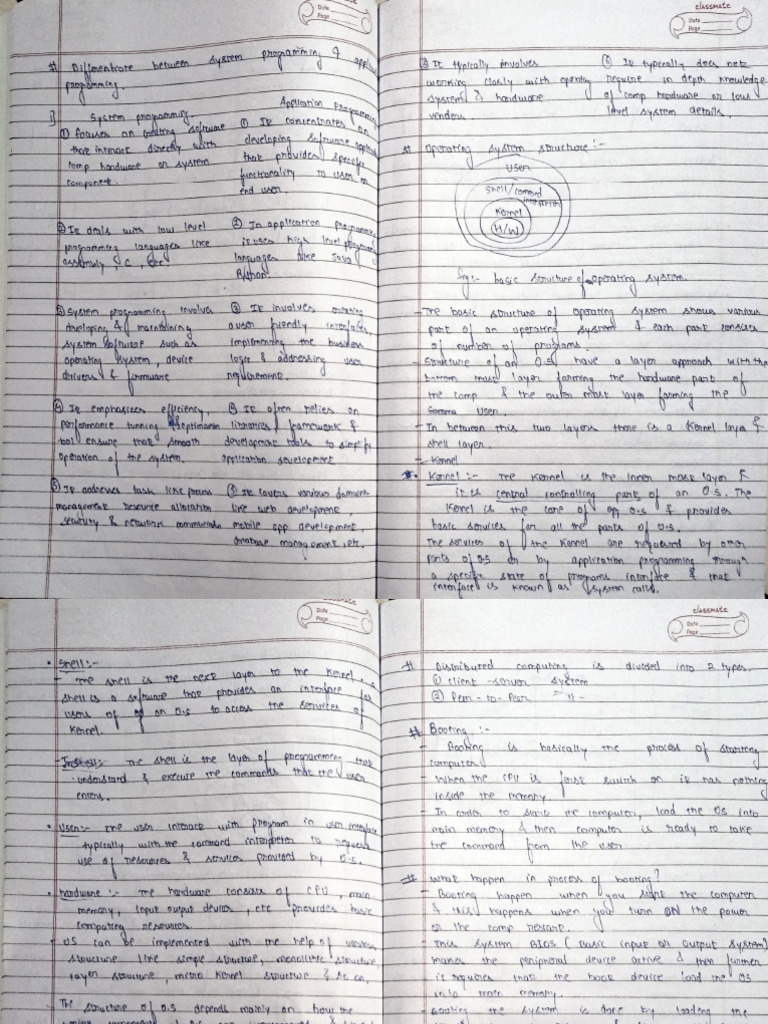 classmate
Date
Page
# Differenciate between system programming & applic
programming.
System programming
① focuses on creating software
that interact directly with
comp hardware or system
component.
Application Programming
① It concentrates on
developing software applic
that provides specific
functionality to user or
end user.
② It deals with low level
programming languages like
assembly, C, etc.
② In application programming
it uses high level program
languages like Java,
Python.
③ System programming involves
developing & maintaining
system software such as
operating system, device
drivers & firmware
③ It involves creating
a user friendly interfaces,
implementing the business
logic & addressing user
requirement.
④ It emphasizes efficiency,
performance tunning & optimization
tool ensure that smooth
operation of the system.
④ It often relies on
libraries, framework &
development tools to simplify
application development
⑤ It address task like process
management resource allocation
security & network communica
⑤ It covers various domains
like web development
mobile app development,
database management, etc.
classmate
Date
Page
⑥ It typically involves
working closly with operting
system & hardware
vendors.
⑥ It typically does note
require in depth knowledge
of comp hardware or low
level system details.
# Operating system structure :-
User
Shell/command
interpreter
Kernel
(H/W)
fig:- basic structure of operating system.
- The basic structure of operating system shows various
part of an operating system & each part consists
of number of programs.
- Structure of an O.S have a layer approach with the
bottom most layer forming the hardware part of
the comp & the outer most layer forming the
User.
- In between this two layers there is a Kernel layer &
shell layer.
- Kernel
• Kernel :- The Kernel is the inner most layer &
it is central controlling part of an O.S. The
Kernel is the core of O.S & provides
basic services for all the parts of O.S.
The services of the Kernel are requested by other
parts of O.S or by application programming through
a specific state of programs interface & that
interface is known as system calls.
Date
Page
• Shell :-
- The shell is the next layer to the Kernel, a
shell is a software that provides an interface for
users of an O.S to access the services of
Kernel.
Inshell:- The shell is the layer of programming that
understand & execute the commands that the user
enters.
• User:- The user interact with program in user interface
typically with the command interpreter to request
use of resources & services provided by O.S.
• hardware :- The hardware consists of CPU, main
memory, Input output device, etc provides basic
computing resources.
- OS can be implemented with the help of various
structure like simple structure, monolithic structure
layer structure, micro kernel structure & so on.
- The structure of O.S depends mainly on how the
classmate
Date
Page
# Distributed computing is divided into 2 types.
① Client-server system
② Peer-to-Peer -"-
# Booting :-
- Booting is basically the process of starting
computer
- When the CPU is first switch on it has nothing
inside the memory.
- In order to start the computer, load the OS into
main memory & then computer is ready to take
the command from the user
# What happen in process of booting?
- Booting happen when you start the computer
& this happens when you turn ON the power
or the comp restart.
- This system BIOS (Basic input or output system)
makes the peripheral device active & then further
it requires that the boot device load the OS
into main memory.
- Booting the system is done by loading the